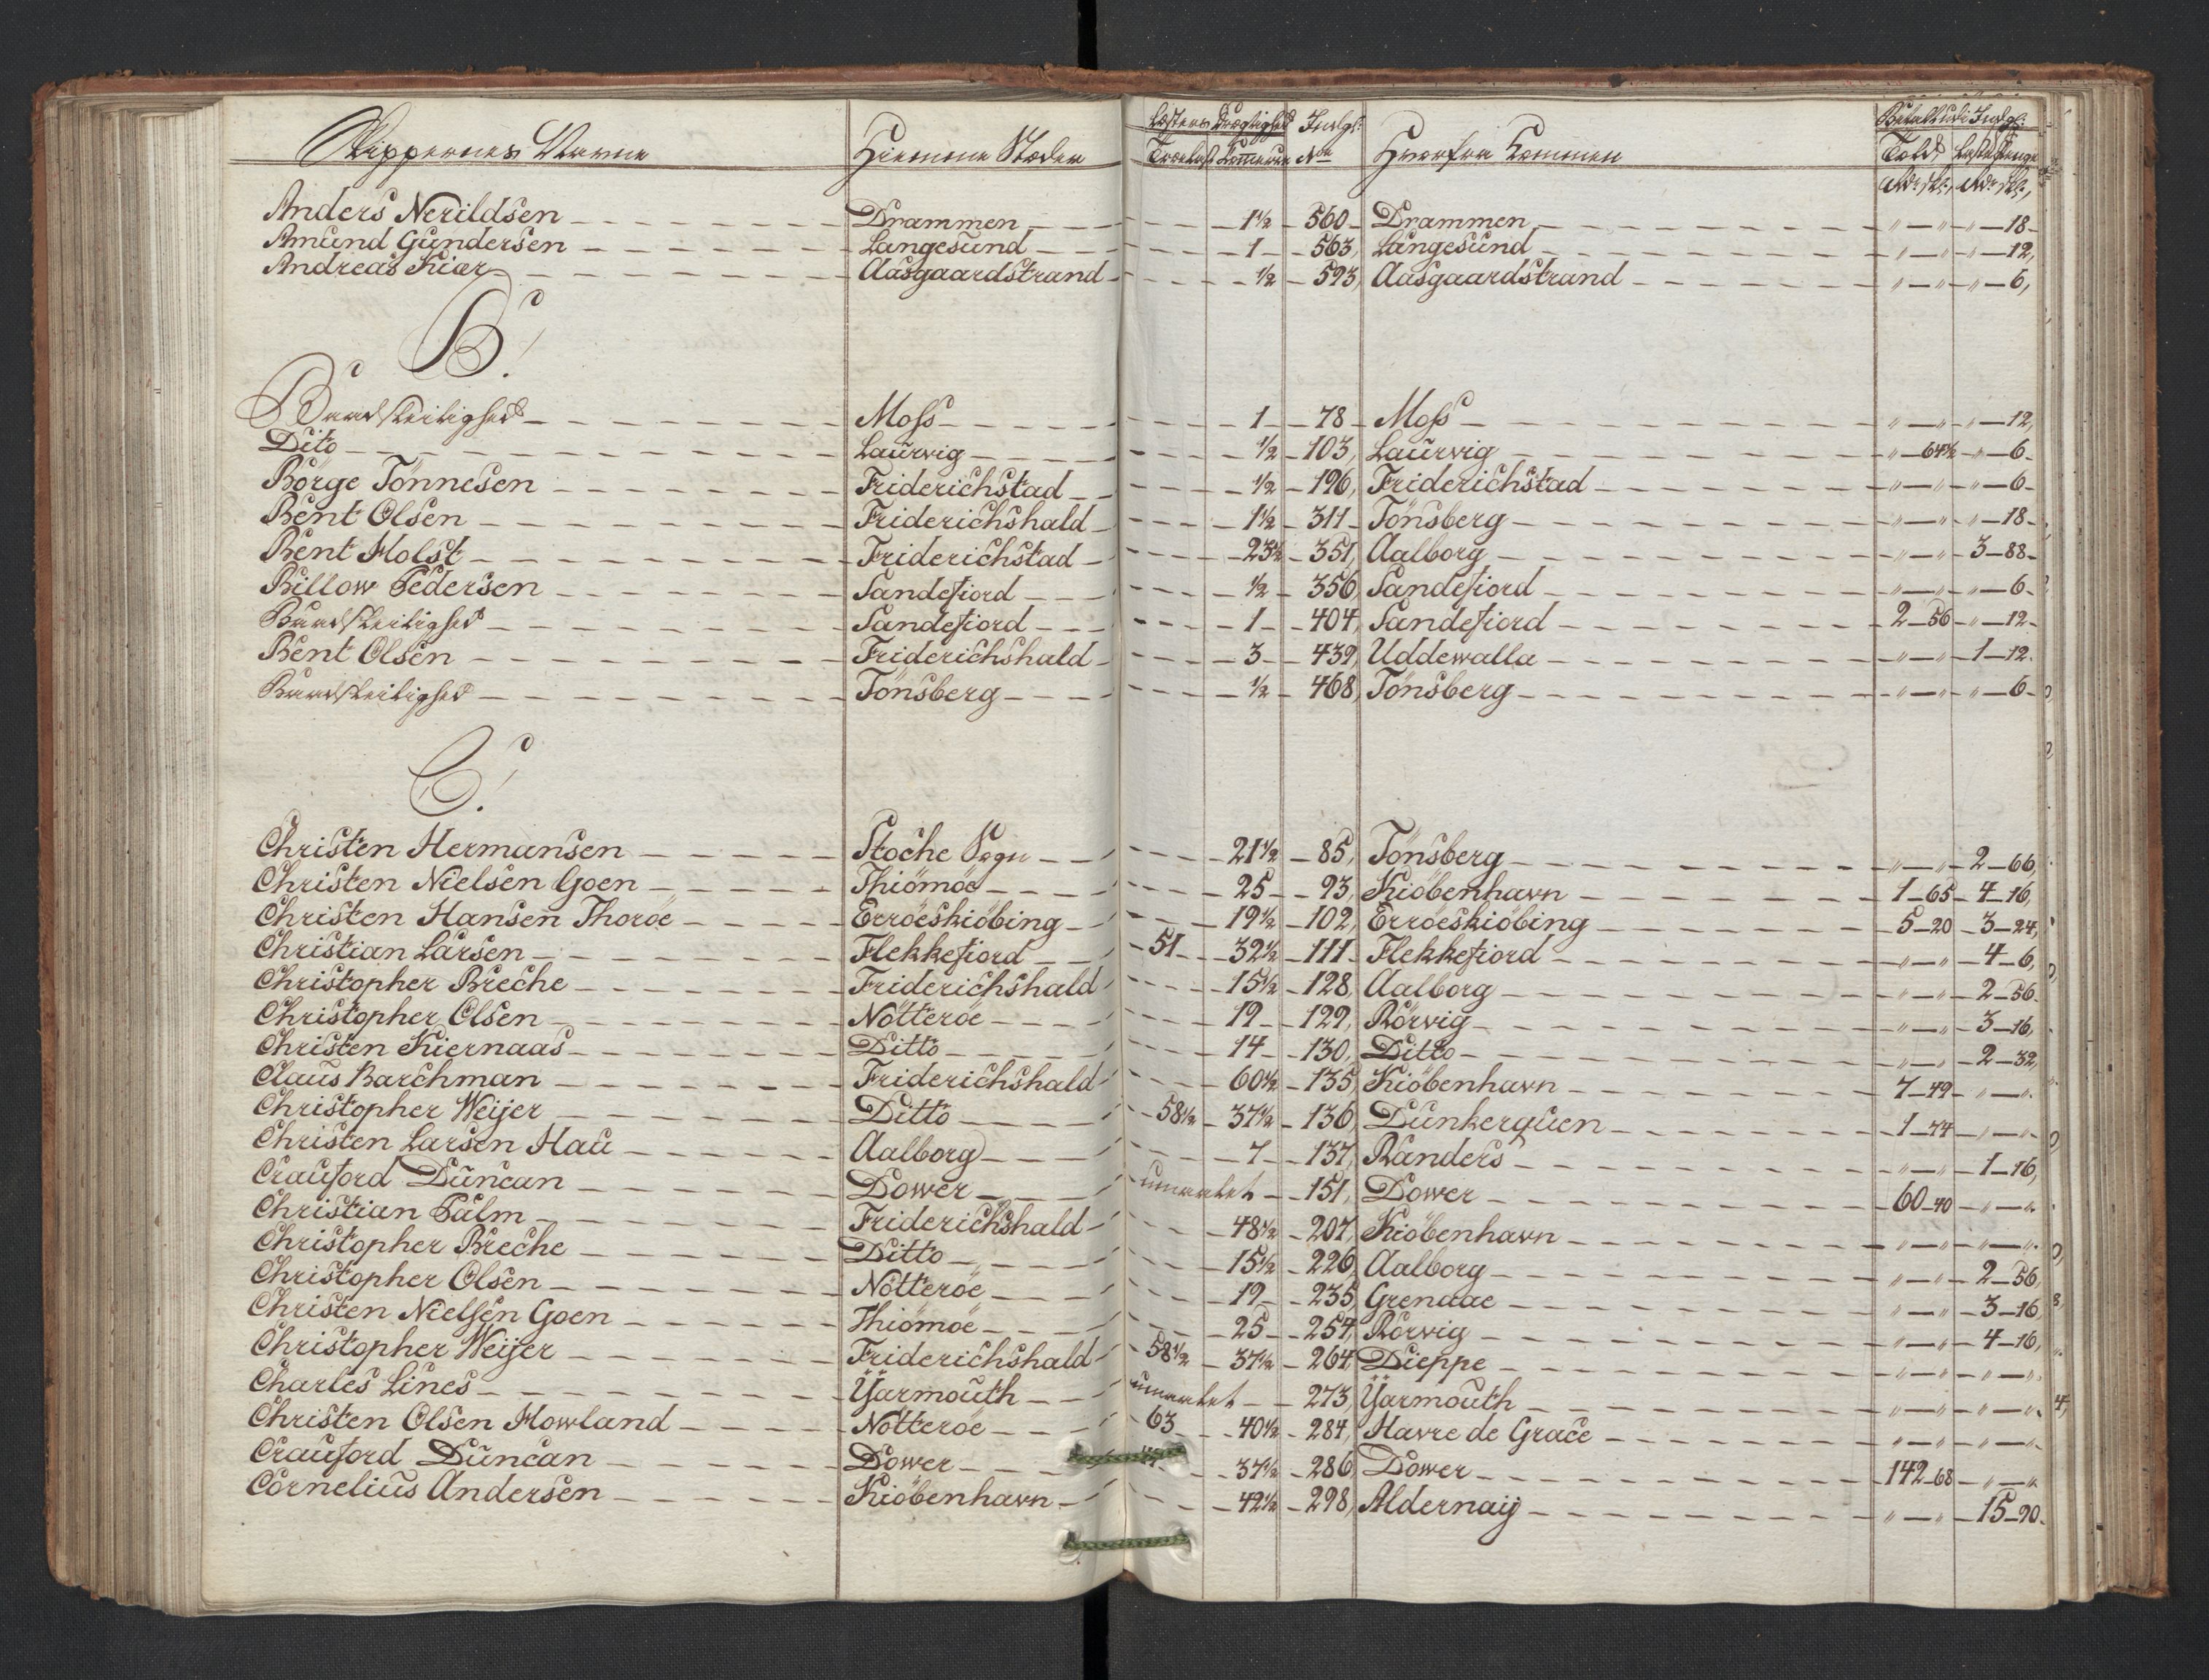 Skippernes Navne Hiemme Stæder Læsters Drægtighed Indlgs: Hvorfra Kommen Betalt udi Indlgs:
Trælast Commerce No Told Lastepenge
Rdr: sk: Rdr: sk:
Anders Nerildsen Drammen 1½ 560 Drammen " " " 18
Amund Gundersen Langesund 1 563 Langesund " " " 12
Andreas Kiær Aasgaardstrand ½ 593 Aasgaardstrand " " " 6
B.
Baadsleilighed Moss 1 78 Moss " " " 12
Dito Laurvig ½ 103 Laurvig " 64½ " 6
Börge Tönnesen Friderichstad ½ 196 Friderichstad " " " 6
Bent Olsen Friderichshald 1½ 311 Tönsberg " " " 18
Bent Holst Friderichstad 23½ 351 Aalborg " " 3 88
Billow Pedersen Sandefiord ½ 356 Sandefiord " " " 6
Baadsleilighed Sandefiord 1 404 Sandefiord 2 56 " 12
Bent Olsen Friderichshald 3 439 Uddewalla " " 1 12
Baadsleilighed Tönsberg ½ 468 Tönsberg " " " 6
C.
Christen Hermansen Stoche Sogn 21½ 85 Tönsberg " " 2 66
Christen Nielsen Goen Thiömöe 25 93 Kiöbenhavn 1 65 4 16
Christen Hansen Thoröe Erröeskiöbing 19½ 102 Erröeskiöbing 5 20 3 24
Christian Larsen Flekkefiord 51 32½ 111 Flekkefiord " " 4 6
Christopher Breche Friderichshald 15½ 128 Aalborg " " 2 56
Christopher Olsen Nötteröe 19 129 Rörvig " " 3 16
Christen Kiernaas Ditto 14 130 Ditto " " 2 32
Claus Barchman Friderichshald 60½ 135 Kiöbenhavn 7 49 " "
Christopher Weijer Ditto 58½ 37½ 136 Dunkerquen 1 74 " "
Christen Larsen Hau Aalborg 7 137 Randers " " 1 16
Crauford Duncan Dower umaalet 151 Dower 60 40 " "
Christian Palm Friderichshald 48½ 207 Kiöbenhavn " " " "
Christopher Breche Ditto 15½ 226 Aalborg " " 2 56
Christopher Olsen Nötteröe 19 235 Grenaae " " 3 16
Christen Nielsen Goen Thiömöe 25 254 Rörvig " " 4 16
Christopher Weijer Friderichshald 58½ 37½ 264 Dieppe " " " "
Charles Lines Yarmouth umaalet 273 Yarmouth " " " "
Christen Olsen Howland Nötteröe 63 40½ 284 Havre de Grace " " " "
Crauford Duncan Dower 37½ 286 Dower 142 68 " "
Cornelius Andersen Kiöbenhavn 42½ 298 Aldernaij " " 15 90